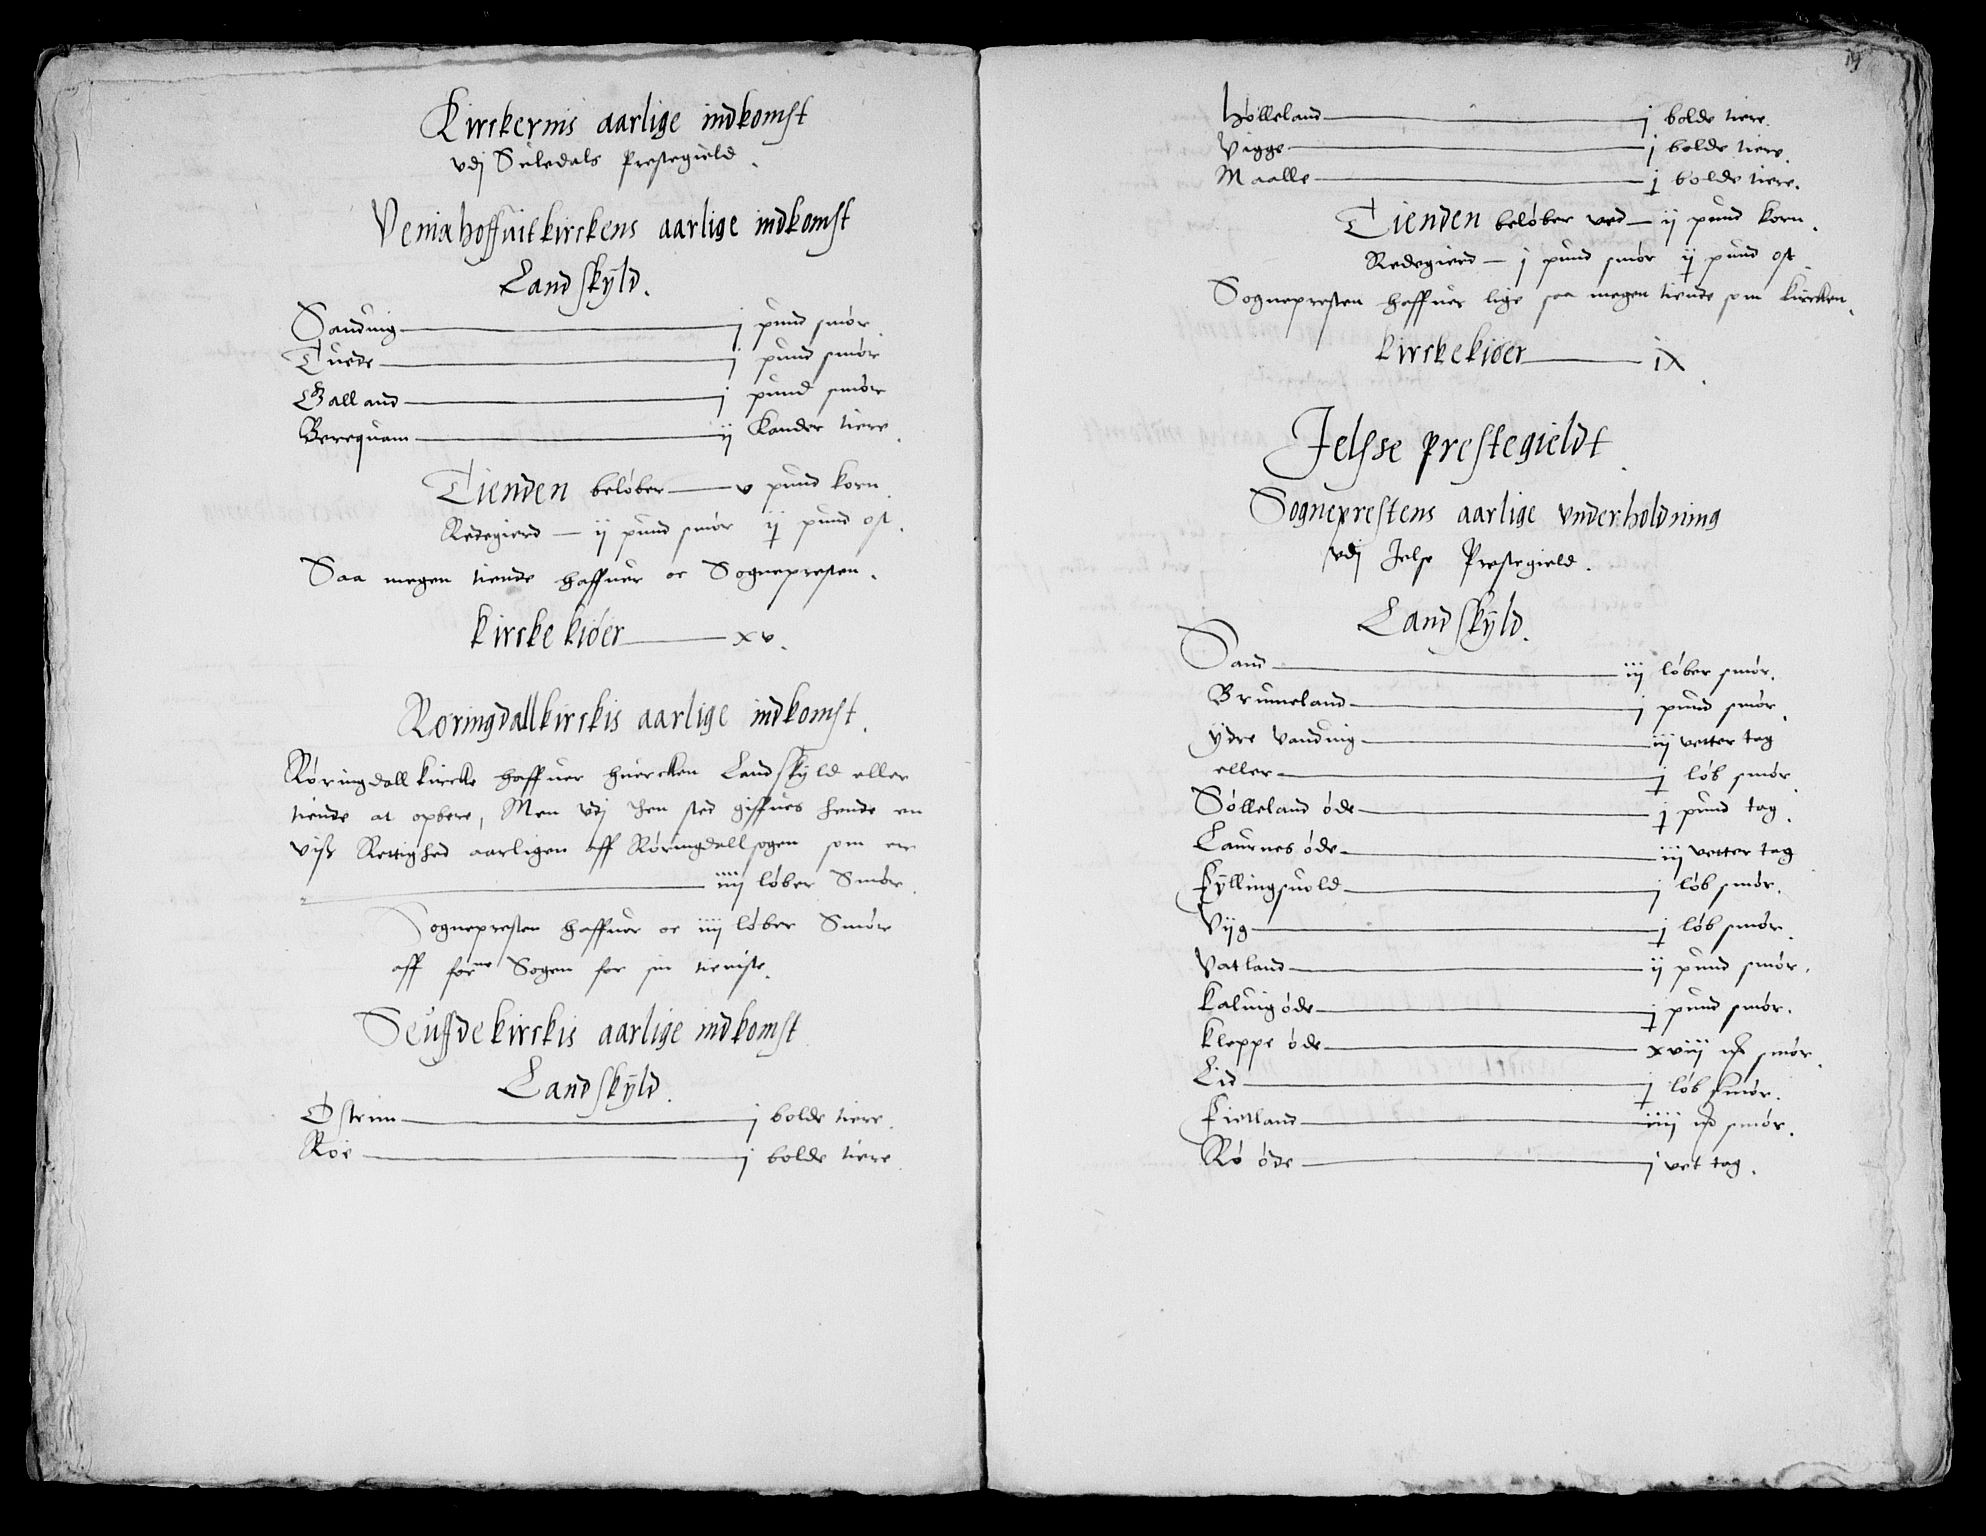 Kirckernis aarlige indkomst
vdj Suledals Prestegield.
Veniahoffuitkirckens aarlige indkomst
Landskyld.
Sanduig j pund smør.
Tuede j pund smør
Galland j pund smør
Berequam ij Kander tiere.
Tienden beløber v pund korn.
Redegierd ij pund smør ij pund ost.
Saa megen tiende haffuer oc Sognepresten.
kirckekiøer xv.
Røringdallkirckis aarlige indkomst.
Røringdall kircke haffuer huercken Landskyld eller
tiende at opbere, Men vdj then sted giffues hende en
viss Rettighed aarligen aff Røringdallsogen som er
iiij løber Smør.
Sognepresten haffuer oc iiij løber Smør
aff forne Sogen for sin tieniste.
Seuffdekirckis aarlige indkomst
Landskyld.
Østrim j bolde tiere.
Røe j bolde tiere.
19
Hølleland j bolde tiere.
Vigge j bolde tiere.
Maalle j bolde tiere.
Tienden beløber ved ij pund korn.
Redegierd j pund smør ij pund ost.
Sognepresten haffuer lige saa megen tiende som kircken.
kirckekiøer ix.
Jelsse prestegieldt.
Sogneprestens aarlige vnderholdning
vdj Jelse Prestegield.
Landskyld.
Sand iij løber smør.
Brumeland j pund smør.
ydre Vanduig iij vetter tag
eller j løb smør.
Sølleland øde j pund tag.
Laurnes øde iij vetter tag
Fyllingsuold j løb smør.
Viig j løb smør.
Vatland ij pund smør.
Kaluig øde j pund smør.
Kleppe øde xviij mk smør.
Lid j løb smør.
Fietland iiij mk smør.
Rø øde j vet tag.